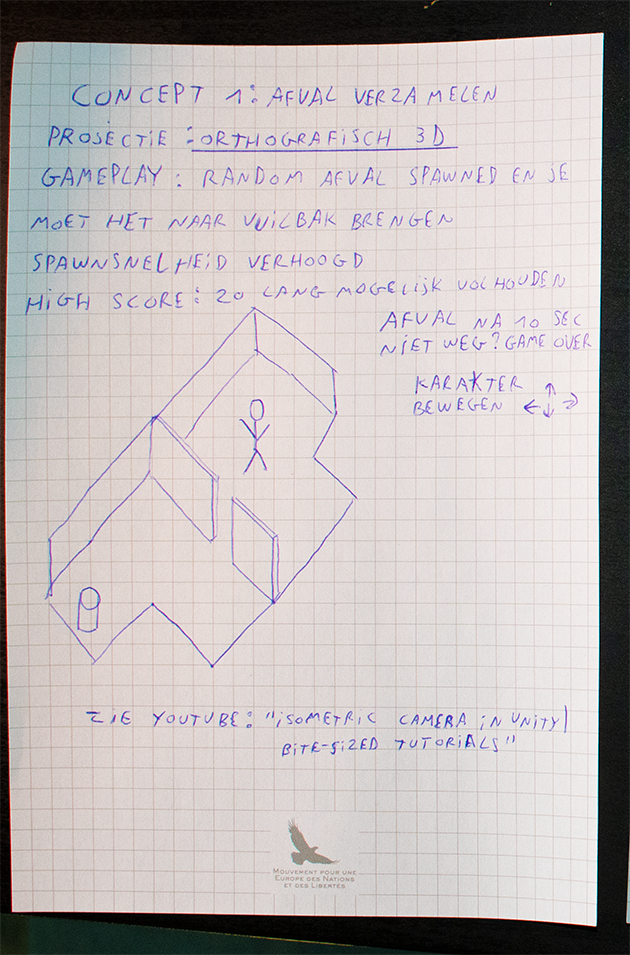 CONCEPT 1: AFVAL VERZAMELEN
PROJECTIE : ORTHOGRAFISCH 3D
GAMEPLAY : RANDOM AFVAL SPAWNED EN JE
MOET HET NAAR VUILBAK BRENGEN
SPAWNSNELHEID VERHOOGD
HIGH SCORE: ZO LANG MOGELIJK VOLHOUDEN
AFVAL NA 10 SEC
NIET WEG? GAME OVER
KARAKTER
BEWEGEN ← ↑ ↓ →
ZIE YOUTUBE: "ISOMETRIC CAMERA IN UNITY|
BITE-SIZED TUTORIALS"
MOUVEMENT POUR UNE
EUROPE DES NATIONS
ET DES LIBERTÉS